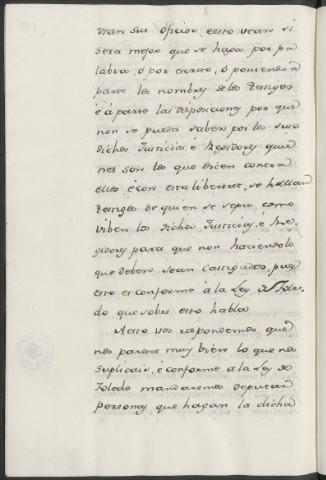 usan sus oficios, e esto vean si
sera mejor que se haga por pa
labra, ó por escrito, ó poniendo á
parte los nombres de los testigos
é á parte las disposiciones por que
non se pueda saber por los suso
dichos Justicias, é Regidores quie
nes son los que dicen contra
ellos, é con esta libertat, se hallan
testigos de quien se sepa, como
viben los dichos Justicias, é Re
gidores para que non haciendolo
que deben sean castigados, pues
esto es conforme á la Ley de Tole
do que sobre esto habla
A esto vos respondemos que
nos parece muy bien lo que nos
suplicais, é conforme á la Ley de
Toledo mandaremos deputar
personas que hagan la dicha